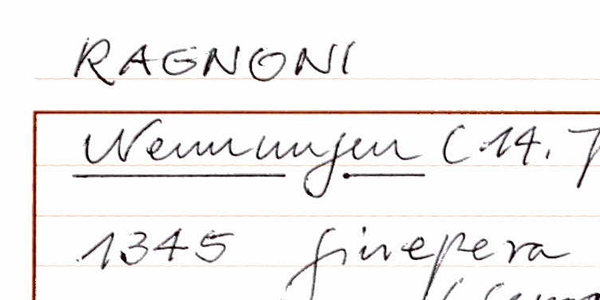 RAGNONI
Nennungen (14.
1345 Ginepera